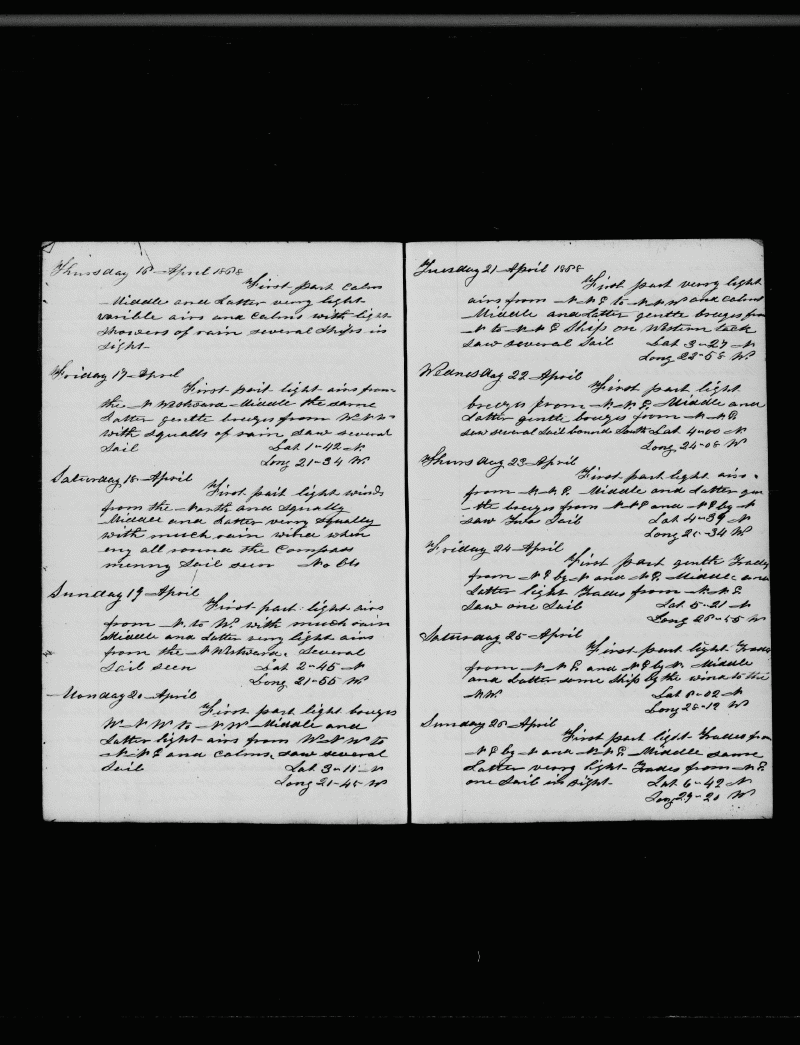 Thursday 16 April 1868
First part Calms
Middle and Latter verry light
varible airs and Calms with light
showers of rain several Ships in
sight
Friday 17 April
First part light airs from
the N Westward Middle the same
Latter gentle breezes from W.N.W
with squalls of rain saw several
Sail Lat 1-42 N
Long 21-34 W
Saturday 18 April
First part light winds
from the North and Squally
Middle and Latter verry squally
with much rain wind when
eny all round the Compass
menny Sail seen No Obs
Sunday 19 April
First part light airs
from N. to W. with much rain
Middle and Latter very light airs
from the N Westward. Several
Sail seen Lat 2-45 N
Long 21-55 W
Monday 20 April
First part light breezes
W N W to N W Middle and
Latter light airs from W N W to
N. N E and Calms, saw several
Sail Lat 3-11 N
Long 21-45 W
Tuesday 21 April 1868
First part verry light
airs from N. N E to N. N. W and Calms
Middle and Latter gentle breezes from
N to N. N E Ship on Western tack
saw several Sail Lat 3-27 N
Long 22-58 W.
Wednesday 22 April
First part light
breezes from N. N. E. Middle and
Latter gentle breezes from N. N. E.
saw several Sail bound South Lat 4-00 N
Long 24-08 W
Thursday 23 April
First part light airs
from N. N. E. Middle and Latter gen
tle breezes from N N E and N E by N
saw Two Sail Lat 4-39 N
Long 25-34 W
Friday 24 April
First part gentle Trades
from N E by N and N E. Middle and
Latter light Trades from N. N. E
Saw one Sail Lat 5-21 N
Long 26-55 W
Saturday 25 April
First part light Trades
from N. N E. and N E by N. Middle
and Latter same Ship by the wind to the
N W. Lat 6-02 N
Long 28-19 W
Sunday 26 April
First part light Trades from
N E by N and N. N E. Middle same
Latter verry light Trades from N. E.
one Sail in sight. Lat 6-42 N
Long 29-20 W